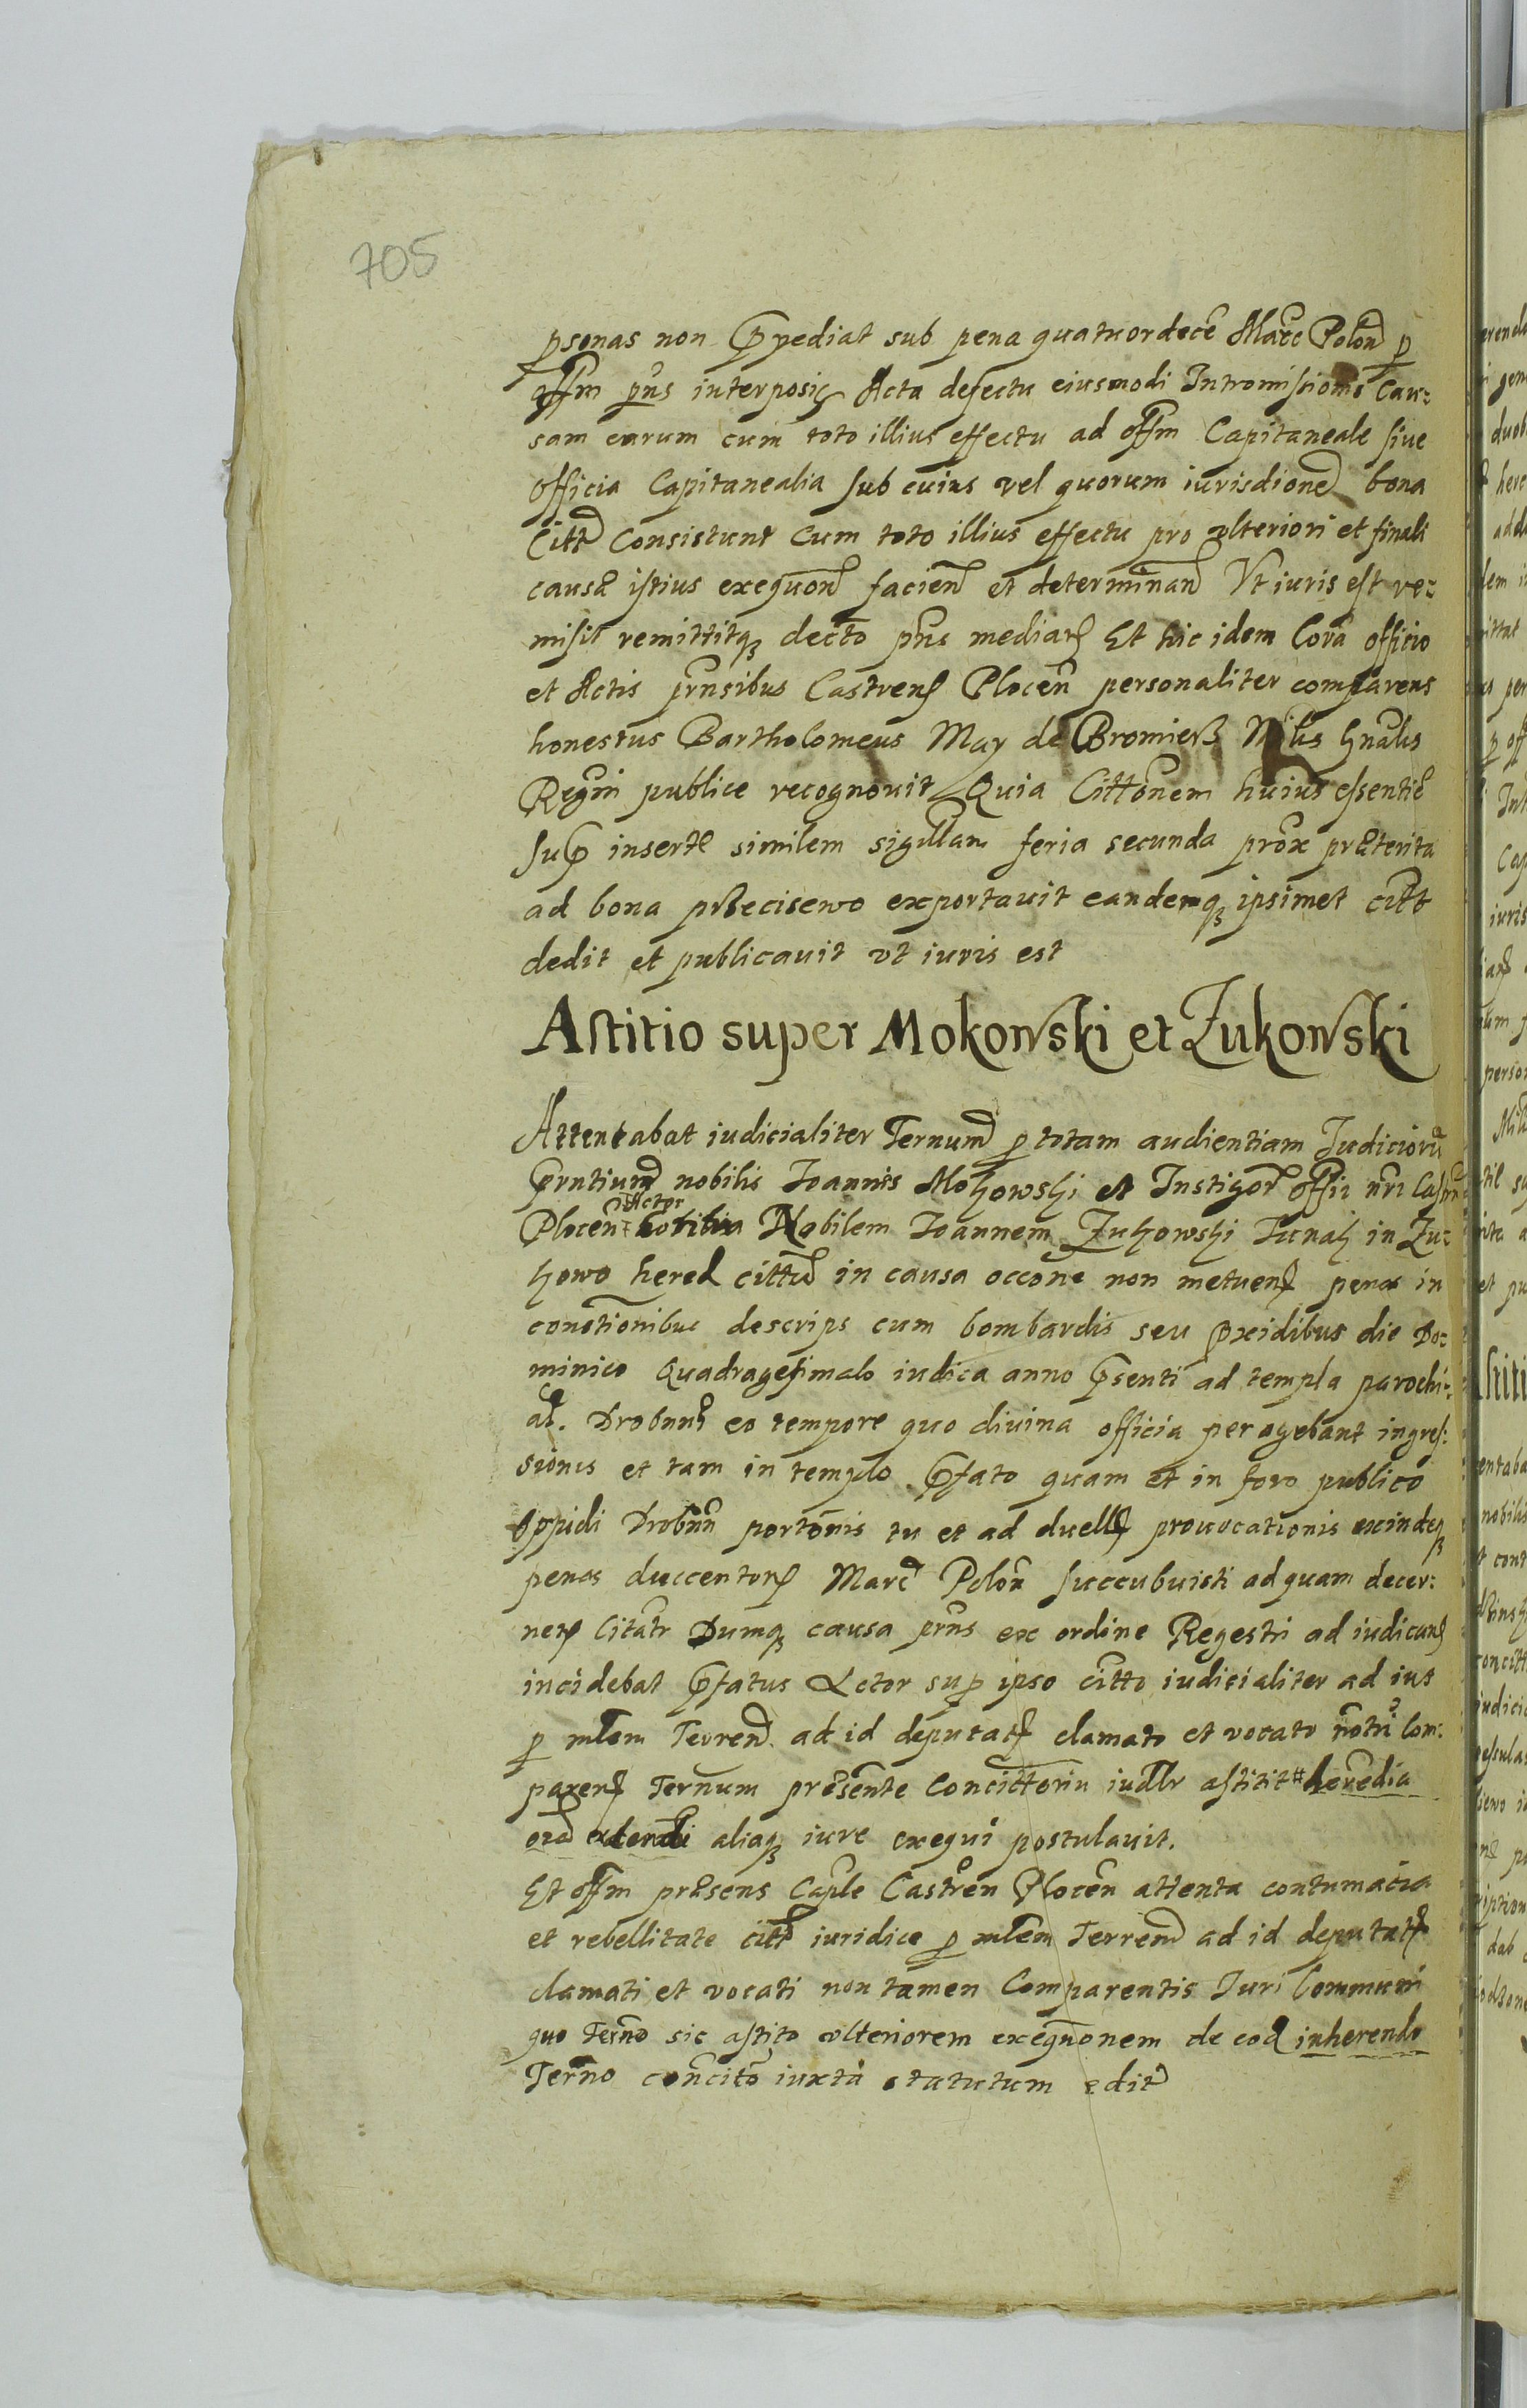 705
psonas non Ppediat sub pena quatuordece Marc Polon p
offm pns interposi Acta defectu eiusmodi Intromissionis Cau:
sam earum cum toto illius effectu ad offm Capitaneale siue
officia Capitanealia sub cuius vel quorum iurisdione bona
Citt Consistunt Cum toto illius effectu pro vlteriori et finali
causæ istius exequon facien et determinan Vt iuris est re:
misit remittitq decto pns median Et hic idem Cora officio
et Actis prnsibus Castren Plocen personaliter comparens
honestus Bartholomeus May de Bromierz Mills Gnalis
Regni publice recognouit Quia Cittonem huius essentie
sup inserte similem sigillam feria secunda prox præterita
ad bona præcisewo exportauit eandemq ipsimet citt
dedit et publicauit vt iuris est
Astitio super Mokowski et Zukowski
Attentabat iudicialiter Ternum p totam audientiam Judicioru
Prntium nobilis Joannes Mokowski et Instigor offii nri Castren
Actor
Plocen Nobilem Joannem Zukowski in Zu:
kowo hered citt in causa occone non metuen penas in
constionibus descrips cum bombardis seu pixidibus die Do:
minico Quadragesimalo iudica anno Psenti ad templa parochi:
al. Drobnn eo tempore quo diuina officia peragebant ingres:
sionis et tam in templo Pfato quam et in foro publico
Oppidi Drobnn portonis tu et ad duell prouocationis exindeq
penas duccentor Marc Polon succubuisti ad quam decer:
nen Citatr Dumq causa prns ex ordine Regestri ad iudicand
incidebat Pfatus Actor sup ipso citto iudicialiter ad ius
p mlem Terren ad id deputat clamato et vocato non tn Com:
paren Ternum præsente Concittorin iudlr astitit # 
 aliaq iure exequi postulauit.
Et offm præsens Caple Castren Plocen attenta contumacia
et rebellitate citt iuridice p mlem Terren ad id deputat
clamati et vocati non tamen Comparentis Juri Communi
quo Terno sic astito vlteriorem exequonem de eod inherendo
Terno concito iuxta statutum edit